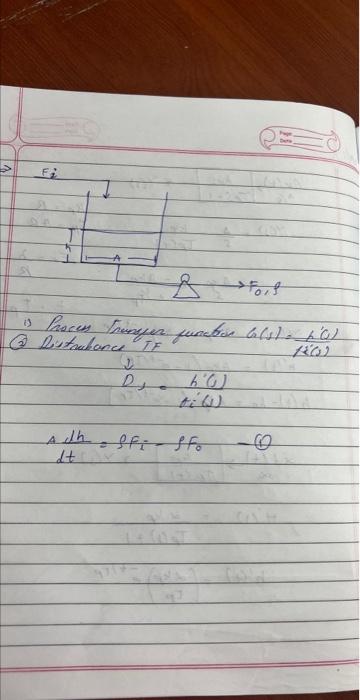 Page
Date
Fi
h
A
Fo, ρ
1) Process Transfer function G(s) = h'(s)
② Disturbance TF
↓
D, = h'(s)
fi'(s)
A dh/dt = ρFi - ρFo - ①